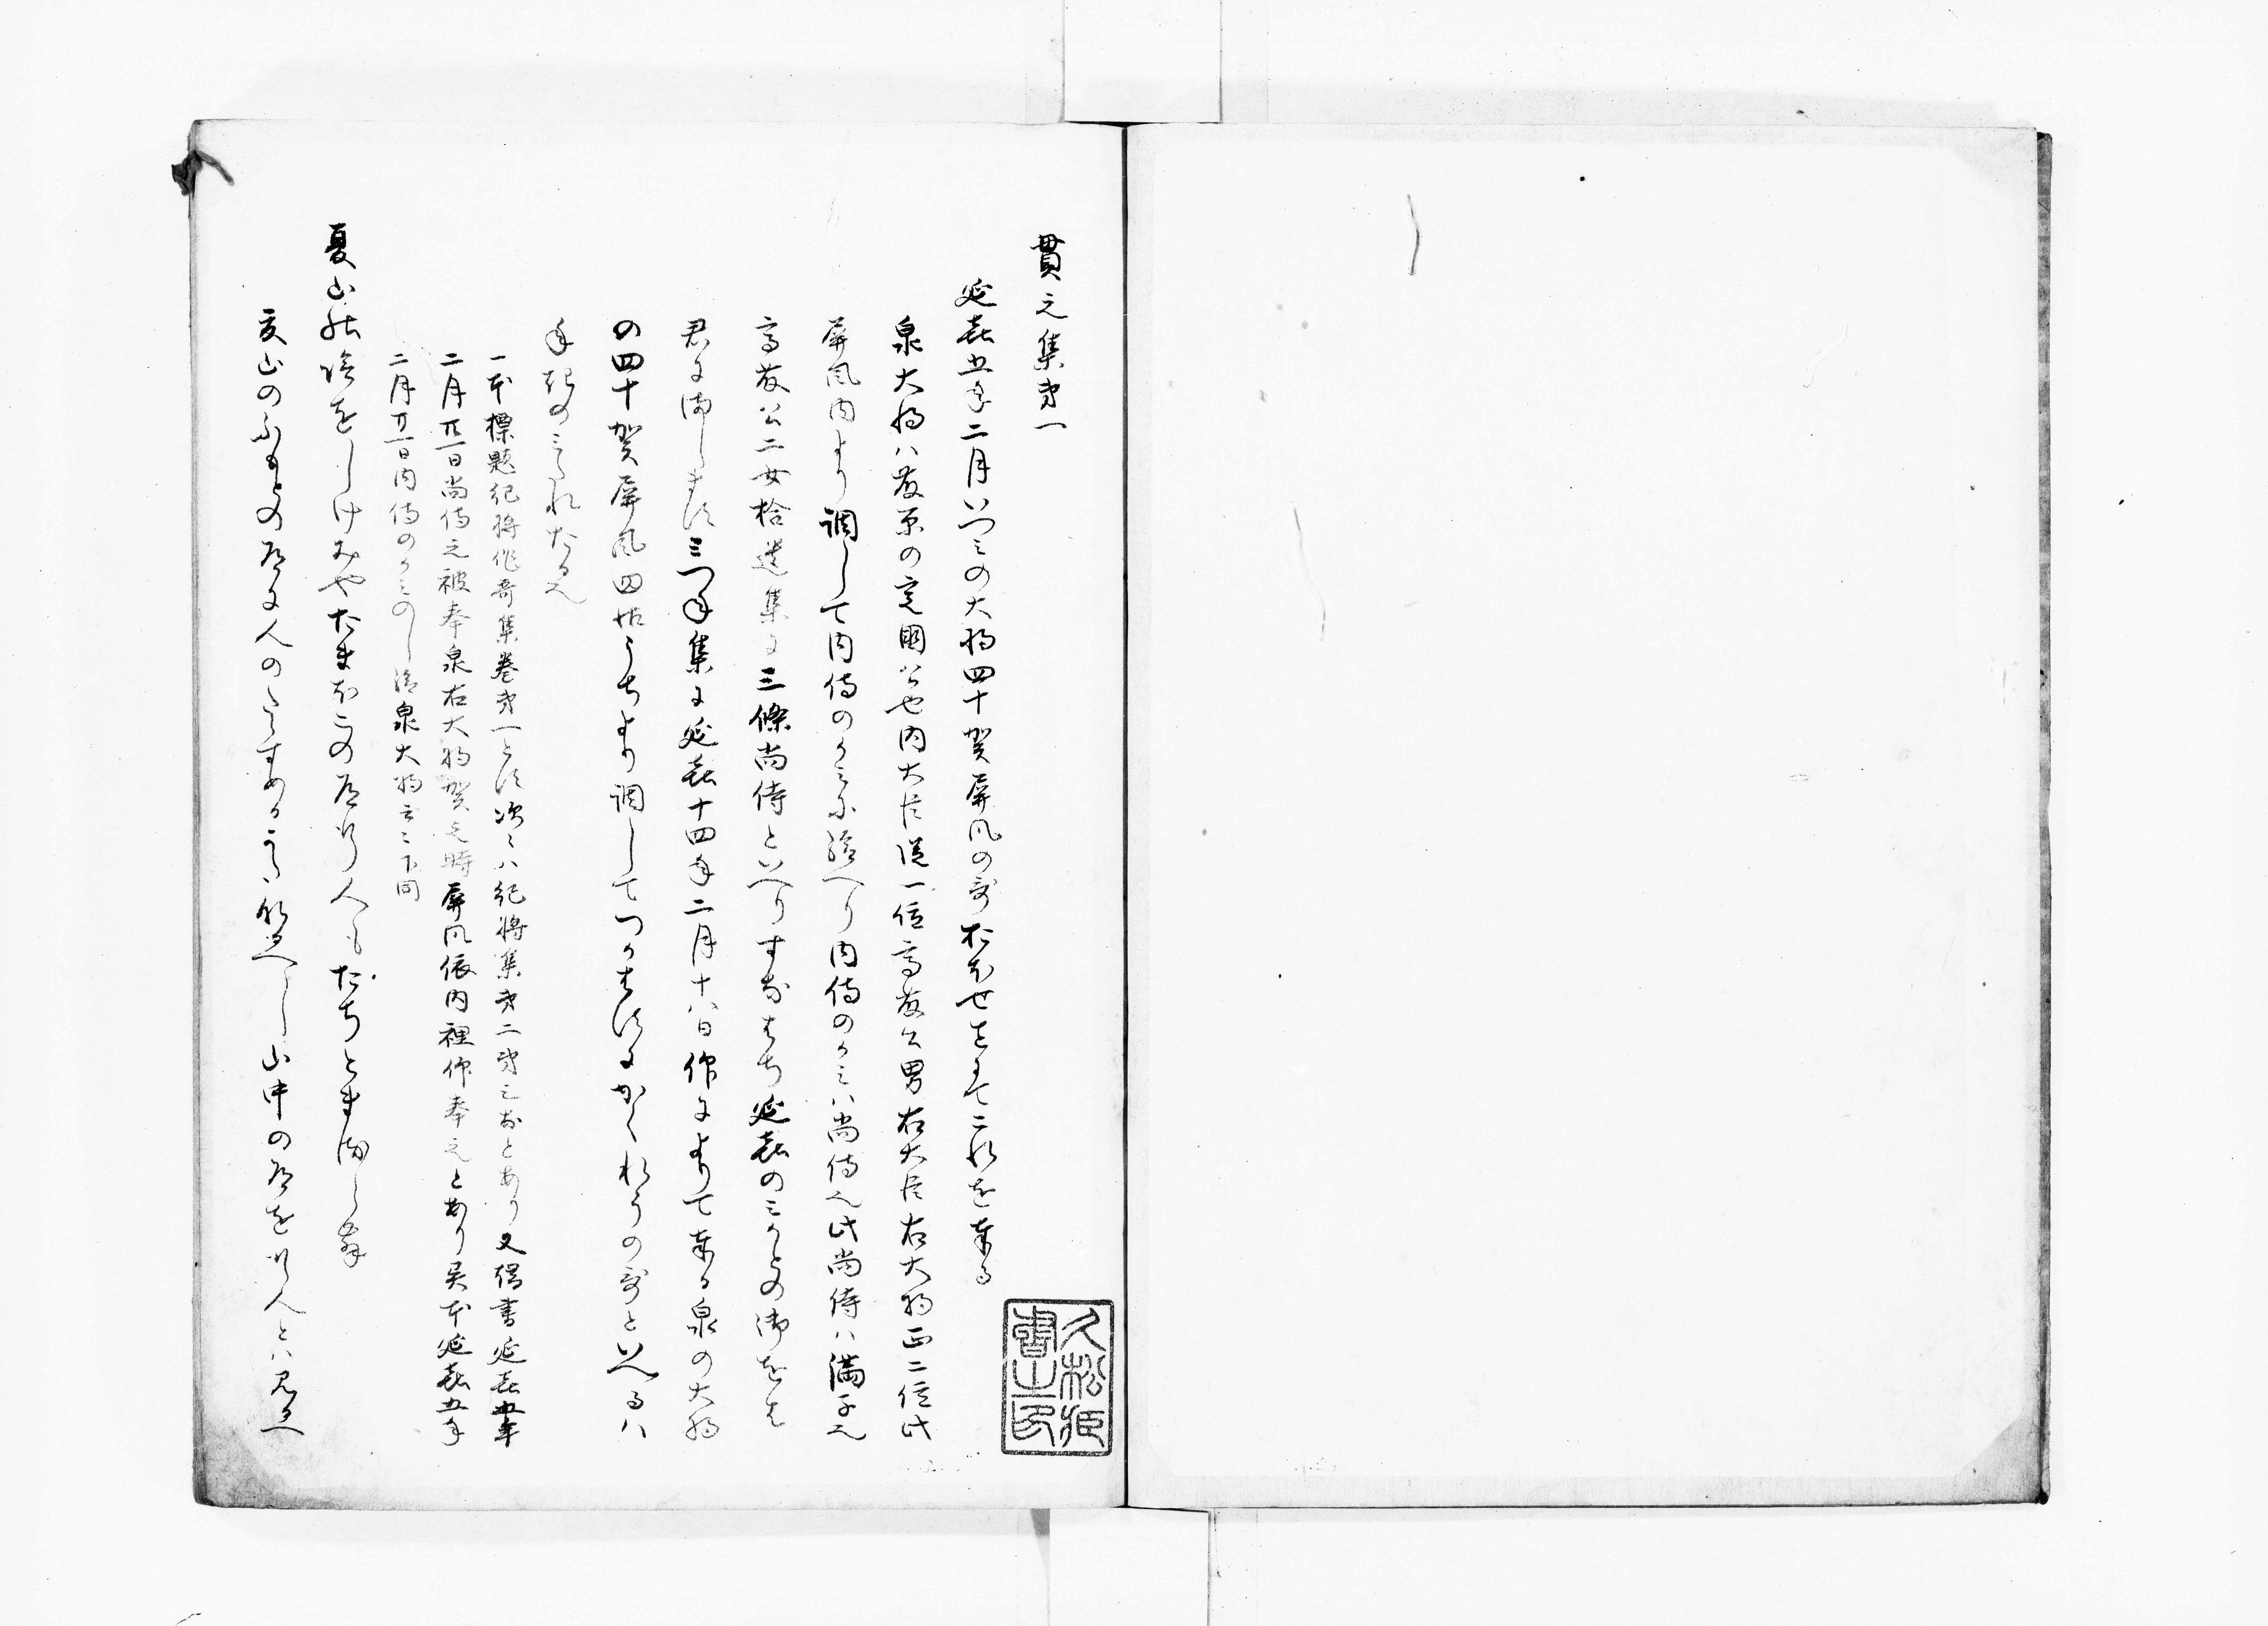 貫之集第一
延喜五年二月いつみの大将四十賀屏風の哥おほせことにてこれを奉る
泉大将ハ藤原の定國公也内大臣従一位高藤公男右大臣右大将正二位此
屏風内より調して内侍のかみに給へり内侍のかみハ尚侍也此尚侍ハ満子也
高藤公二女拾遺集に三條尚侍といへりすなはち延喜のみかとの御をは
君におはします三つ年集に延喜十四年二月十八日仰によりて奉る泉の大将
の四十賀屏風四帖うちより調してつかはすにかくれうの哥といへるハ
年記のみたれたる也
一本標題紀将作哥集巻第一とす次々ハ紀将集第二第三なとあり又傍書延喜五年
二月廿一日尚侍之被奉泉右大将賀之時屏風依内裡仰奉之とあり異本延喜五年
二月廿一日内侍のかみのし給泉大将云々下同
夏山の陰をしけみやたまほこの道行人もたちとまるらん
夏山のふもとの道に人のたゝすめるかたなるへし山中の道を行人とハ見え
久松家
書之印